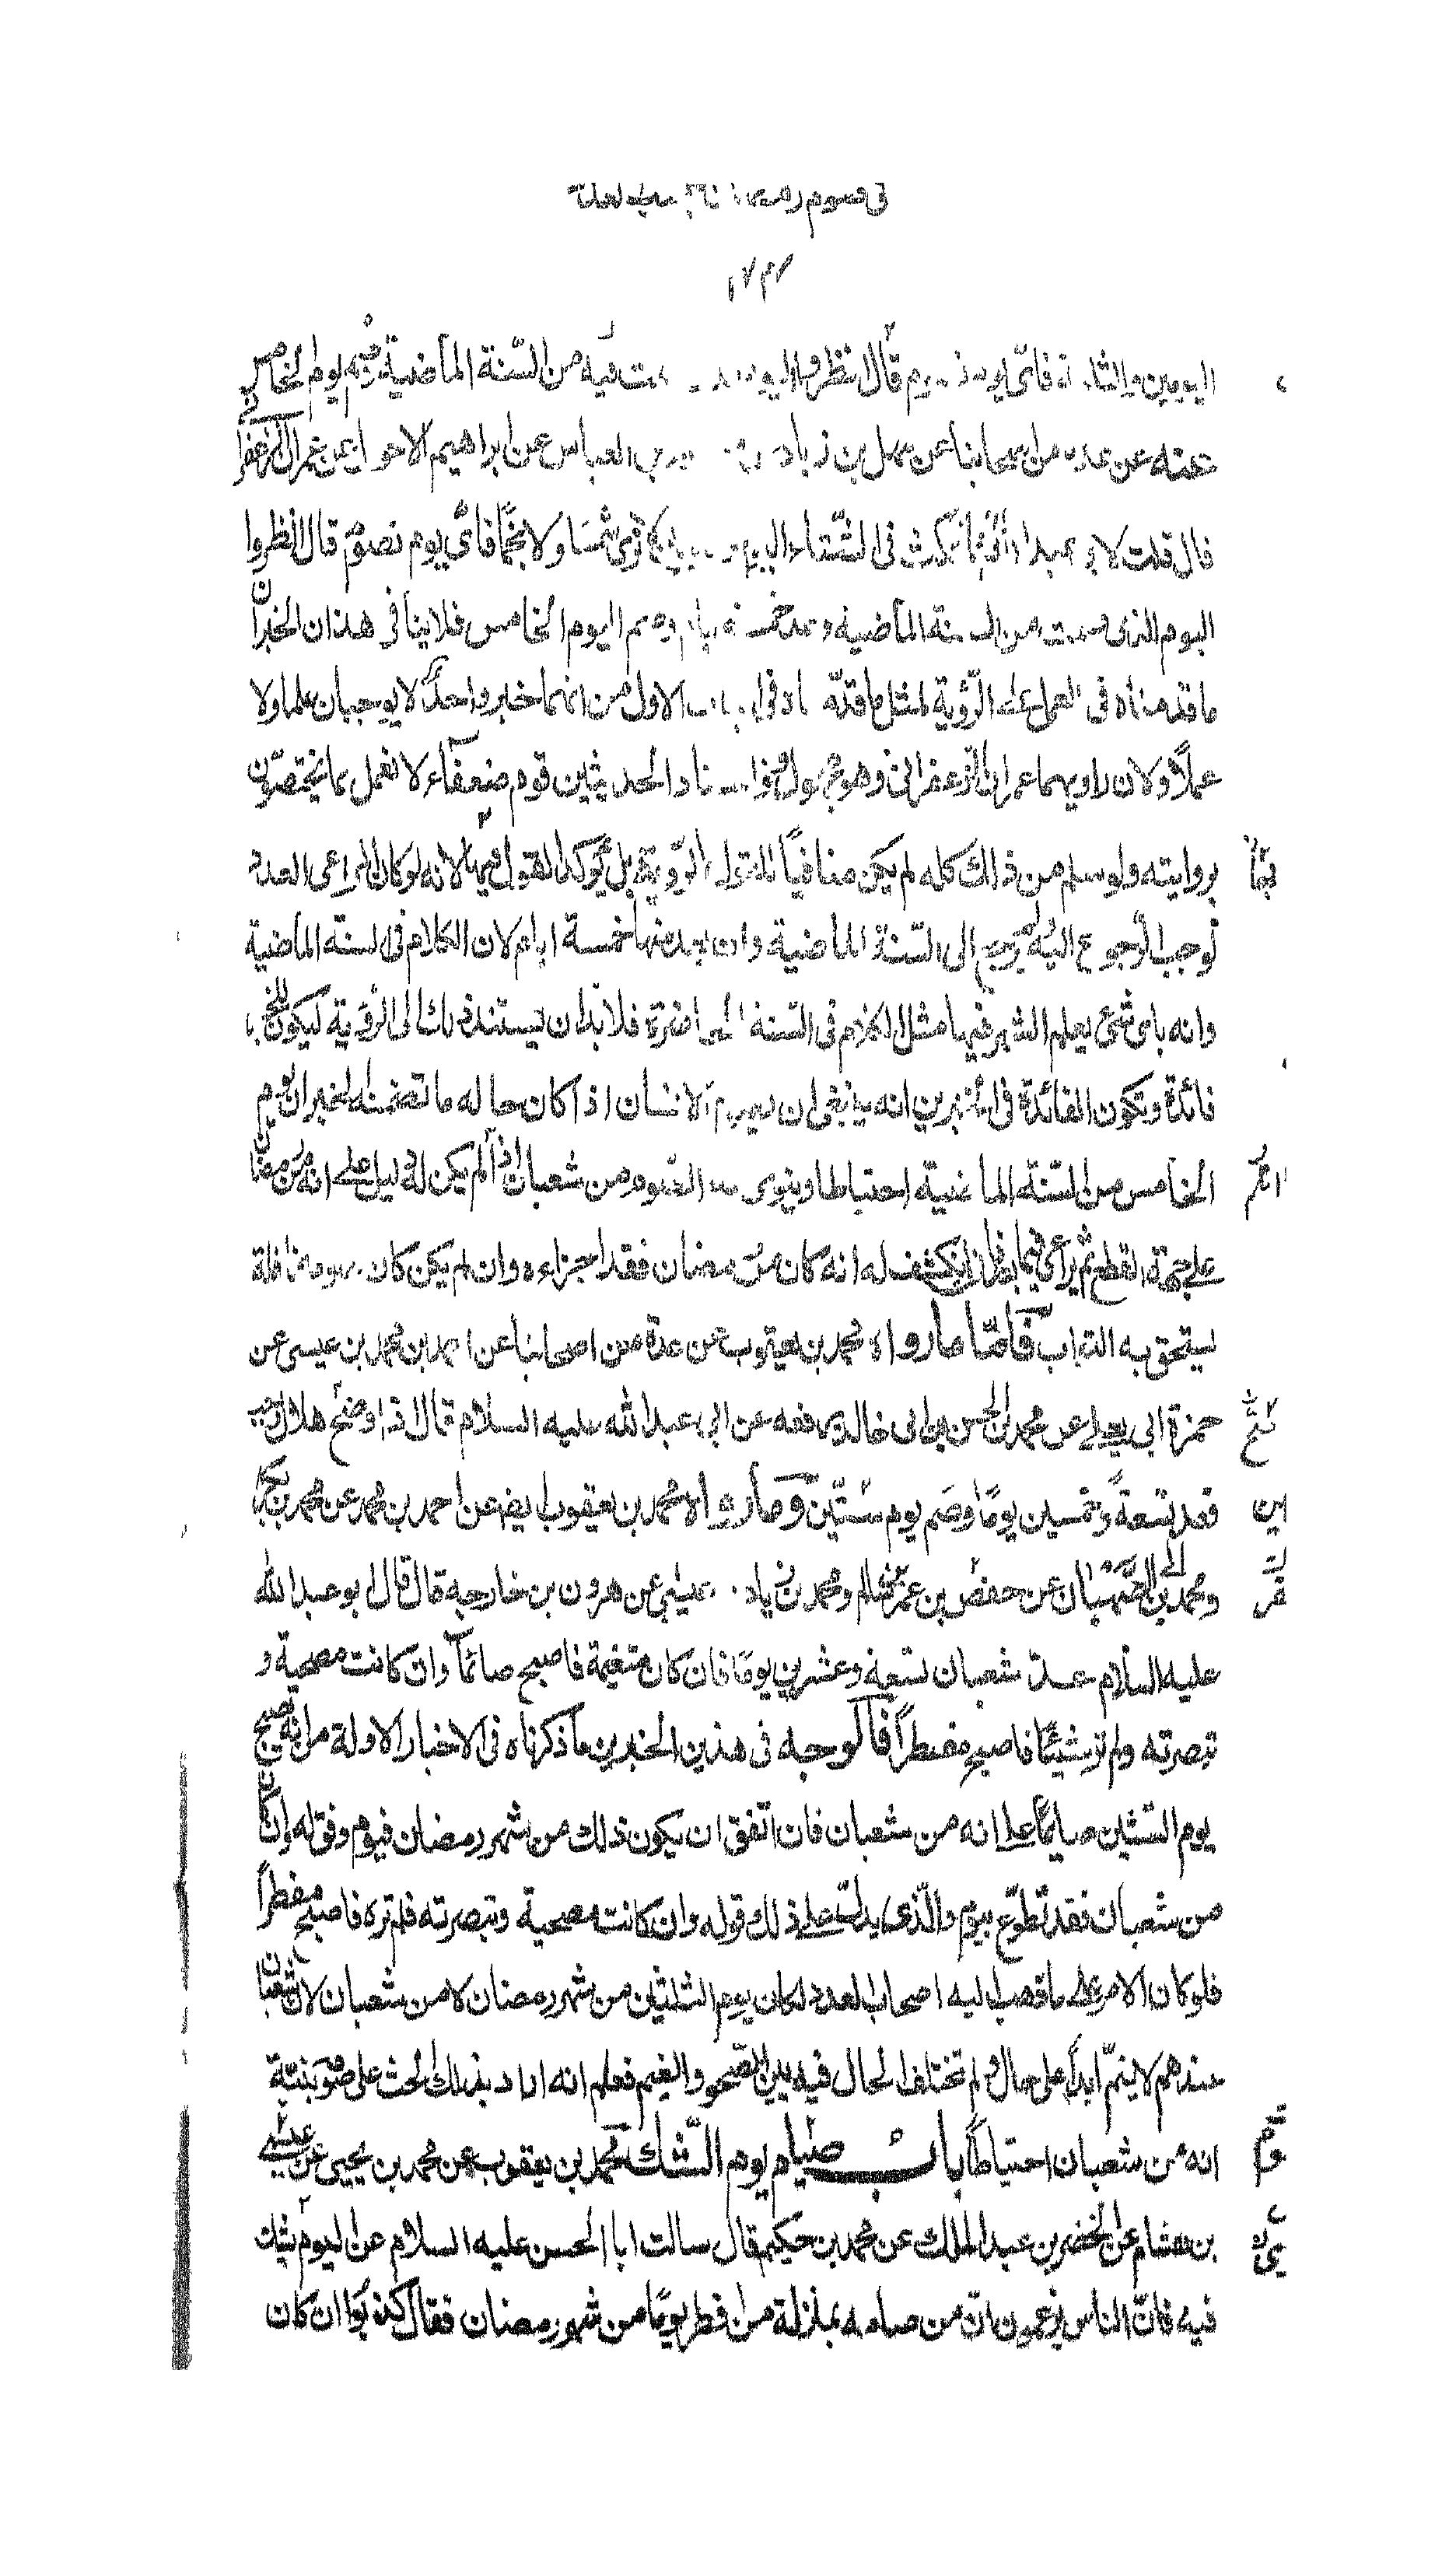 اليومين والثلاثة فاى يوم نصوم قال انظروا اليوم صمت فيه من السنة الماضية وصم يوم الخامس
عنه عن عدة من اصحابنا عن سهل بن زياد عن العباس عن ابراهيم الاحول عن عمران الزعفرانى
قال قلت لابى عبدالله انما نمكث فى الشتاء اليوم لا نرى شمسا ولا نجما فاى يوم نصوم قال انظروا
اليوم الذى صمت من السنة الماضية وعد خمسة ايام وصم اليوم الخامس فلا ينافى هذان الخبران
ما قدمناه فى العمل على الرؤية لمثل ما قدمناه فى الباب الاول من انهما خبر واحد لا يوجبان علما ولا
عملا ولان راويهما عمران الزعفرانى وهو مجهول وفى اسناد الحديثين قوم ضعفاء لا نعمل بما يختصون
بروايته ولو سلم من ذلك كله لم يكن منافيا للقول بالرؤية بل يؤكد القول فيها لانه لو كان المراعى العدد
لوجب الرجوع اليه ولم يرجع الى السنة الماضية وان يعد منها خمسة ايام لان الكلام فى السنة الماضية
وانه باى شئ يعلم الشهر فيها مثل الكلام فى السنة الحاضرة فلا بد ان يستند ذلك الى الرؤية ليكون للخبر
فائدة وتكون الفائدة فى الخبرين انه ينبغى ان يصوم الانسان اذا كان حاله ما تضمنه الخبران يوم
الخامس من السنة الماضية احتياطا وينوى به الصوم من شعبان اذا لم يكن له دليل على انه من رمضان
على جهة القطع ثم يراعى فيما بعد فان انكشف له انه كان من رمضان فقد اجزاءه وان لم يكن كان صومه نافلة
يستحق به الثواب فأما ما رواه محمد بن يعقوب عن عدة من اصحابنا عن احمد بن محمد بن عيسى عن
حمزة ابى يعلى عن محمد بن الحسن بن ابى خالد يرفعه عن ابى عبدالله عليه السلام قال اذا وضح هلال رجب
فعد تسعة وخمسين يوما وصم يوم ستين وما رواه محمد بن يعقوب ايضا عن احمد بن محمد عن محمد بن بكر
ومحمد بن ابى الصهبان عن حفص بن عمر بن سالم ومحمد بن زياد بن عيسى عن هرون بن خارجه قال قال ابو عبدالله
عليه السلام عد شعبان تسعة وعشرين يوما فان كان متغيمة فاصبح صائما وان كانت مصحية و
تبصرته ولم تر شيئا فاصبح مفطرا فالوجه فى هذين الخبرين ما ذكرناه فى الاخبار الاولة من انه يصبح
يوم الثلثين صايما على انه من شعبان فان اتفق ان يكون ذلك من شهر رمضان فيوم وفق له وان كان
من شعبان فقد تطوع بيوم والذى يدل على ذلك قوله وان كانت مصحية وتبصرته فلم تره فاصبح مفطرا
فلو كان الامر على ما ذهب اليه اصحاب العدد لكان يوم الثلثين من شهر رمضان لا من شعبان لان شعبان
عندهم لا يتم ابدا على حال ولم تختلف الحال فيه بين الصحو والغيم فعلم انه اراد بذلك الحث على صومه بنية
انه من شعبان احتياطا باب صيام يوم الشك محمد بن يعقوب عن محمد بن يحيى عن
بن هشام عن الخضر بن عبد الملك عن محمد بن حكيم قال سالت ابا الحسن عليه السلام عن اليوم يشك
فيه فان الناس يزعمون ان من صامه بمنزلة من افطر يوما من شهر رمضان فقال كذبوا ان كان